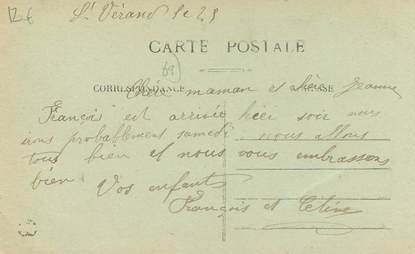 12€
St Vérand le 25
CARTE POSTALE
69
CORRESPONDANCE ADRESSE
Chère maman et chère Jeanne
François est arrivée hier soir nous
irons probablement samedi nous allons
tous bien et nous vous embrassons
bien. Vos enfants
François et